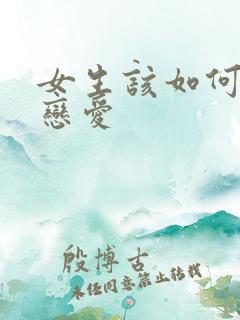 女生該如何
戀愛
殷博古
未经同意禁止转载